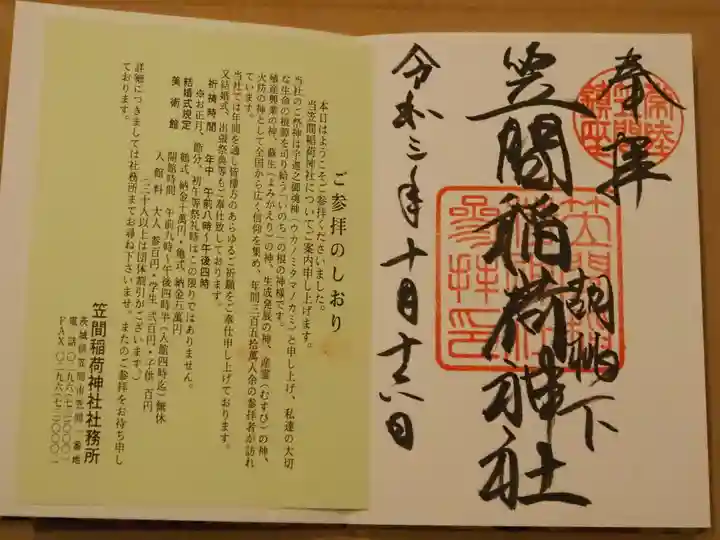 奉拝
笠間稲荷神社
胡桃下
令和三年十月十六日
ご参拝のしおり
本日はようこそご参拝くださいました。
当笠間稲荷神社についてご案内申し上げます。
当社のご祭神は宇迦之御魂神(ウカノミタマノカミ)と申し上げ、私達の大切
な生命の根源を司り給う「いのち」の根の神様です。
殖産興業の神、蘇生(よみがえり)の神、生成発展の神、産霊(むすび)の神、
火防の神として全国から広く信仰を集め、年間三百五拾萬人余の参拝者が訪れ
ています。
当社では年間を通し皆様方のあらゆるご祈願をご奉仕申し上げております。
又結婚式、出張祭典等もご奉仕致しております。
祈祷時間 年中 午前八時〜午後四時
※お正月、節分、初午等祭礼時はこの限りではありません。
結婚式規定 鶴式、納金十萬円・亀式、納金五萬円
美術館 開館時間 午前九時〜午後四時半(入館四時迄)無休
入館料 大人 参百円・学生 弐百円・子供 百円
(三十人以上は団体割引がございます。)
詳細につきましては社務所までお尋ね下さいませ。またのご参拝をお待ち申し
ております。
笠間稲荷神社社務所
茨城県笠間市笠間一番地
電話〇二九六(七三)〇〇〇一
FAX〇二九六(七三)〇〇〇二